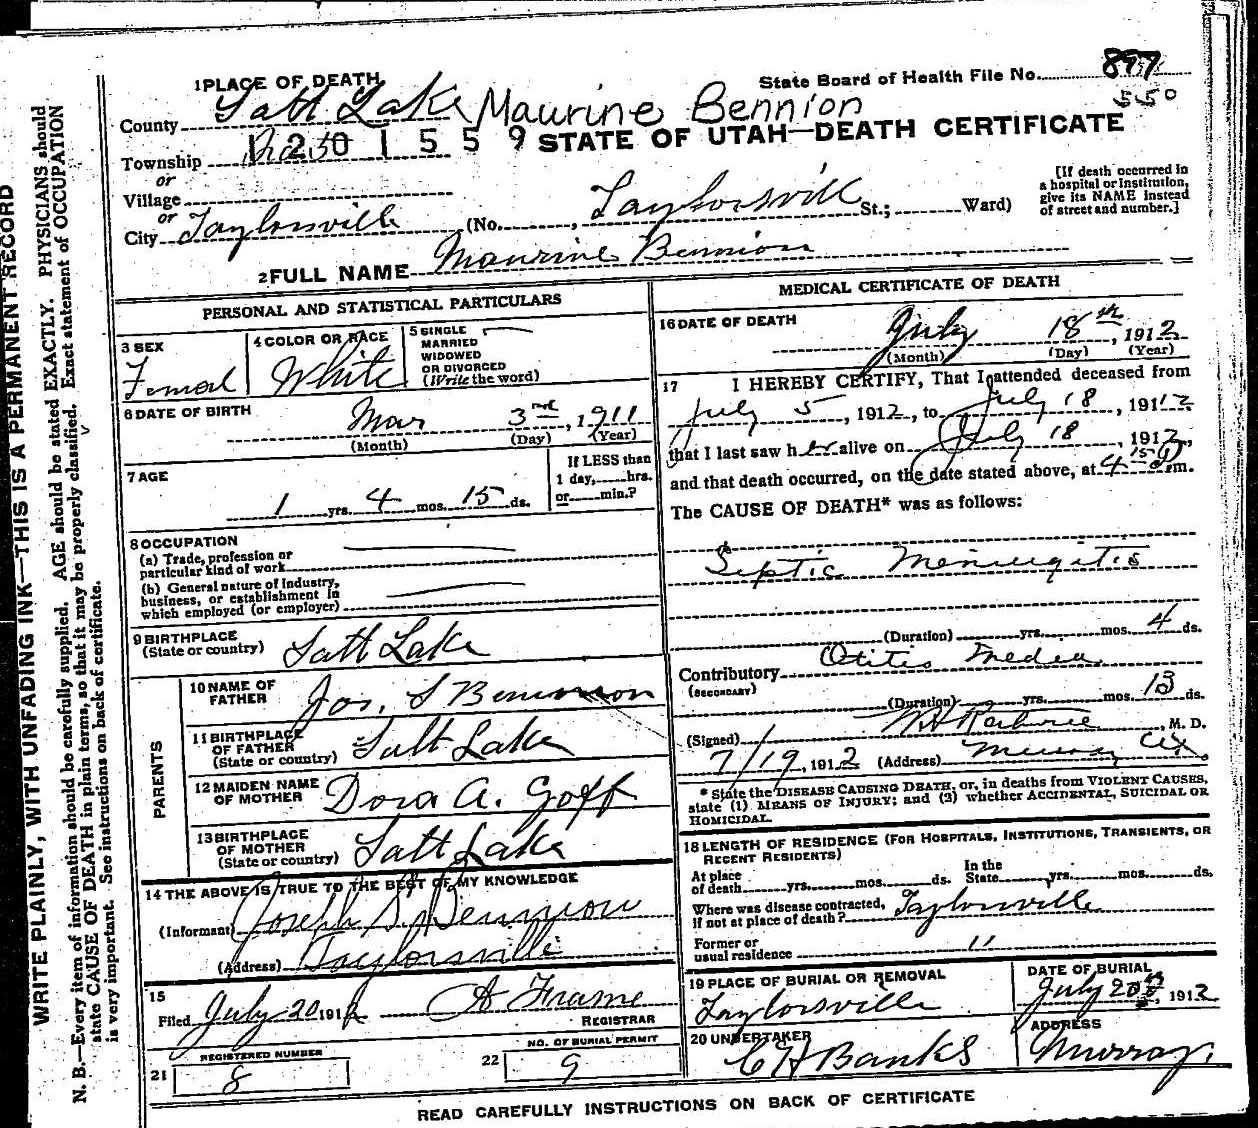 1 PLACE OF DEATH
State Board of Health File No. 897
550
County Salt Lake Maurine Bennion
1201559 STATE OF UTAH—DEATH CERTIFICATE
Township
or
Village
or
City Taylorsville (No. , Taylorsvill St.; Ward)
[If death occurred in
a hospital or institution,
give its NAME instead
of street and number.]
2 FULL NAME Maurine Bennion
PERSONAL AND STATISTICAL PARTICULARS
3 SEX
Femal
4 COLOR OR RACE
White
5 SINGLE
MARRIED
WIDOWED
OR DIVORCED
(Write the word)
6 DATE OF BIRTH
Mar 3rd, 1911
(Month) (Day) (Year)
7 AGE
1 yrs. 4 mos. 15 ds.
If LESS than
1 day, hrs.
or min.?
8 OCCUPATION
(a) Trade, profession or
particular kind of work
(b) General nature of Industry,
business, or establishment in
which employed (or employer)
9 BIRTHPLACE
(State or country) Salt Lake
PARENTS
10 NAME OF
FATHER Jos. S Bennion
11 BIRTHPLACE
OF FATHER
(State or country) Salt Lake
12 MAIDEN NAME
OF MOTHER Dora A. Goff
13 BIRTHPLACE
OF MOTHER
(State or country) Salt Lake
14 THE ABOVE IS TRUE TO THE BEST OF MY KNOWLEDGE
(Informant) Joseph S. Bennion
(Address) Taylorsville
15
Filed July 20 1912 A Frame
REGISTRAR
REGISTERED NUMBER
21 8
NO. OF BURIAL PERMIT
22 9
MEDICAL CERTIFICATE OF DEATH
16 DATE OF DEATH
July 18th, 1912
(Month) (Day) (Year)
17 I HEREBY CERTIFY, That I attended deceased from
July 5, 1912, to July 18, 1912
that I last saw her alive on July 18, 1912,
and that death occurred, on the date stated above, at 4 15 m.
The CAUSE OF DEATH* was as follows:
Septic Meningitis
(Duration) yrs. mos. 4 ds.
Contributory Otitis Media
(SECONDARY)
(Duration) yrs. mos. 13 ds.
(Signed) , M. D.
7/19, 1912 (Address) Murray Utx
* State the DISEASE CAUSING DEATH, or, in deaths from VIOLENT CAUSES,
state (1) MEANS OF INJURY; and (2) whether ACCIDENTAL, SUICIDAL OR
HOMICIDAL.
18 LENGTH OF RESIDENCE (FOR HOSPITALS, INSTITUTIONS, TRANSIENTS, OR
RECENT RESIDENTS)
At place
of death yrs. mos. ds.
In the
State yrs. mos. ds.
Where was disease contracted,
if not at place of death? Taylorsville
Former or
usual residence "
19 PLACE OF BURIAL OR REMOVAL
Taylorsville
DATE OF BURIAL
July 20th, 1912
20 UNDERTAKER
C H Banks
ADDRESS
Murray.
READ CAREFULLY INSTRUCTIONS ON BACK OF CERTIFICATE
WRITE PLAINLY, WITH UNFADING INK—THIS IS A PERMANENT RECORD
N. B.—Every item of information should be carefully supplied. AGE should be stated EXACTLY. PHYSICIANS should
state CAUSE OF DEATH in plain terms, so that it may be properly classified. Exact statement of OCCUPATION
is very important. See instructions on back of certificate.